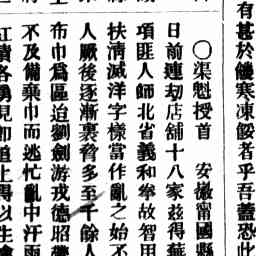 有甚於饑寒凍餒者乎吾蓋恐此
〇渠魁授首　安徽甯國縣
日前連刼店舖十八家茲得蕪
項匪人師北省義和拳故智用
扶清滅洋字樣當作亂之始不
人厥後逐漸裹脅多至千餘人
布巾爲區迫劉劍游戎德昭
不及備棄巾而逃忙亂中汗雨
紅漬各勇見卽追上得以生擒